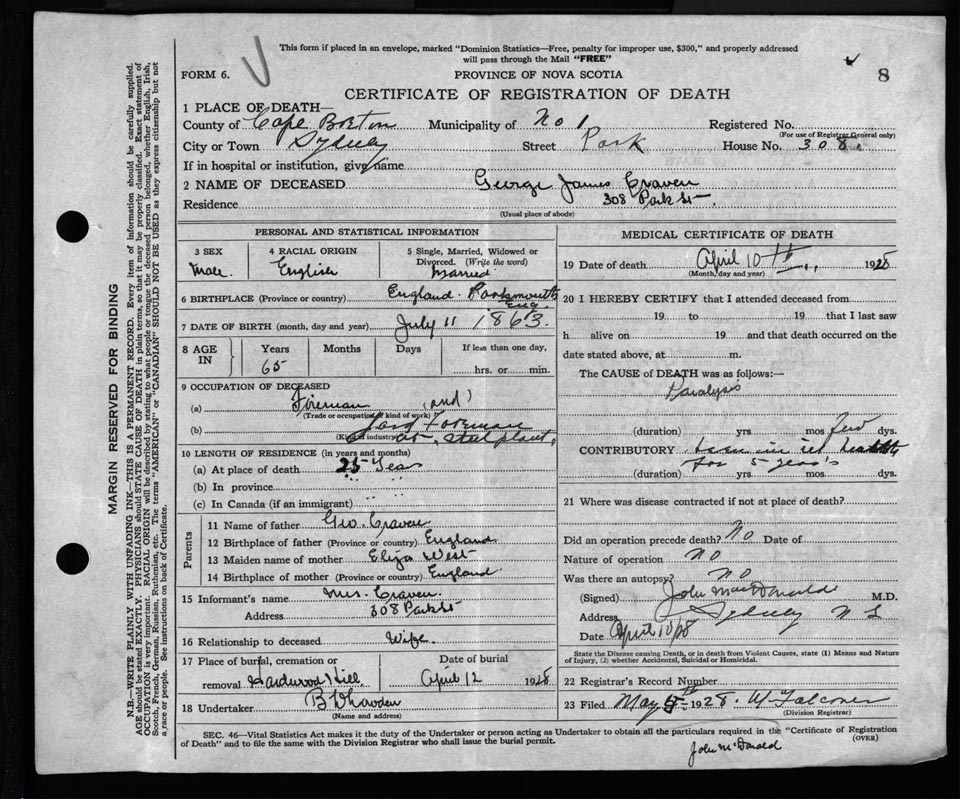 This form if placed in an envelope, marked "Dominion Statistics—Free, penalty for improper use, $300," and properly addressed
will pass through the Mail "FREE"
8
FORM 6.
PROVINCE OF NOVA SCOTIA
CERTIFICATE OF REGISTRATION OF DEATH
1 PLACE OF DEATH—
County of Cape Breton Municipality of No 1 Registered No.
(For use of Registrar General only)
City or Town Sydney Street Park House No. 308.
If in hospital or institution, give name
2 NAME OF DECEASED George James Craven
Residence 308 Park St.
(Usual place of abode)
PERSONAL AND STATISTICAL INFORMATION
3 SEX Male
4 RACIAL ORIGIN English
5 Single, Married, Widowed or
Divorced. (Write the word)
Married
6 BIRTHPLACE (Province or country) England. Portsmouth
Eng.
7 DATE OF BIRTH (month, day and year) July 11 1863.
8 AGE IN Years Months Days If less than one day,
65 hrs. or min.
9 OCCUPATION OF DECEASED
(a) Fireman (and)
(Trade or occupation of kind of work)
(b) Foreman
(Kind of industry) at steel plant,
10 LENGTH OF RESIDENCE (in years and months)
(a) At place of death 25 Years
(b) In province
(c) In Canada (if an immigrant)
Parents
11 Name of father Geo. Craven
12 Birthplace of father (Province or country) England
13 Maiden name of mother Eliza West
14 Birthplace of mother (Province or country) England
15 Informant's name Mrs. Craven
Address 308 Park St
16 Relationship to deceased Wife.
17 Place of burial, cremation or Date of burial
removal Hardwood Hill April 12 1928
18 Undertaker
(Name and address)
MEDICAL CERTIFICATE OF DEATH
19 Date of death April 10th, 1928
(Month, day and year)
20 I HEREBY CERTIFY that I attended deceased from
19 to 19 that I last saw
h alive on 19 and that death occurred on the
date stated above, at m.
The CAUSE of DEATH was as follows:—
Paralysis
(duration) yrs. mos. Few dys.
CONTRIBUTORY Been in ill health
for 5 years
(duration) yrs. mos. dys.
21 Where was disease contracted if not at place of death?
Did an operation precede death? No Date of
Nature of operation No
Was there an autopsy? No
(Signed) John MacDonald M.D.
Address Sydney N S
Date April 10/28
State the Disease causing Death, or in death from Violent Causes, state (1) Means and Nature
of Injury, (2) whether Accidental, Suicidal or Homicidal.
22 Registrar's Record Number
23 Filed May 5th 1928. W. Falconer
(Division Registrar)
SEC. 46—Vital Statistics Act makes it the duty of the Undertaker or person acting as Undertaker to obtain all the particulars required in the "Certificate of Registration
of Death" and to file the same with the Division Registrar who shall issue the burial permit.
(OVER)
John McDonald
MARGIN RESERVED FOR BINDING
N.B.—WRITE PLAINLY WITH UNFADING INK—THIS IS A PERMANENT RECORD. Every item of information should be carefully supplied.
AGE should be stated EXACTLY. PHYSICIANS should STATE CAUSE OF DEATH in plain terms, so that it may be properly classified. Exact statement of
OCCUPATION is very important. RACIAL ORIGIN will be described by stating to what people or tongue the deceased person belonged, whether English, Irish,
Scotch, French, German, Russian, Ruthenian, etc. The terms "AMERICAN" or "CANADIAN" SHOULD NOT BE USED as they express citizenship but not
a race or people. See instructions on back of Certificate.